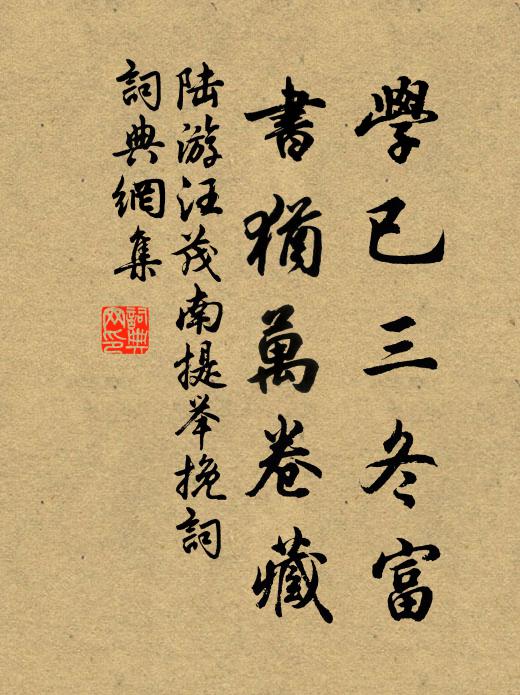 學已三冬富
書猶萬卷藏
陸游汪茂南提举挽詞
詞典網集
詞典
网印